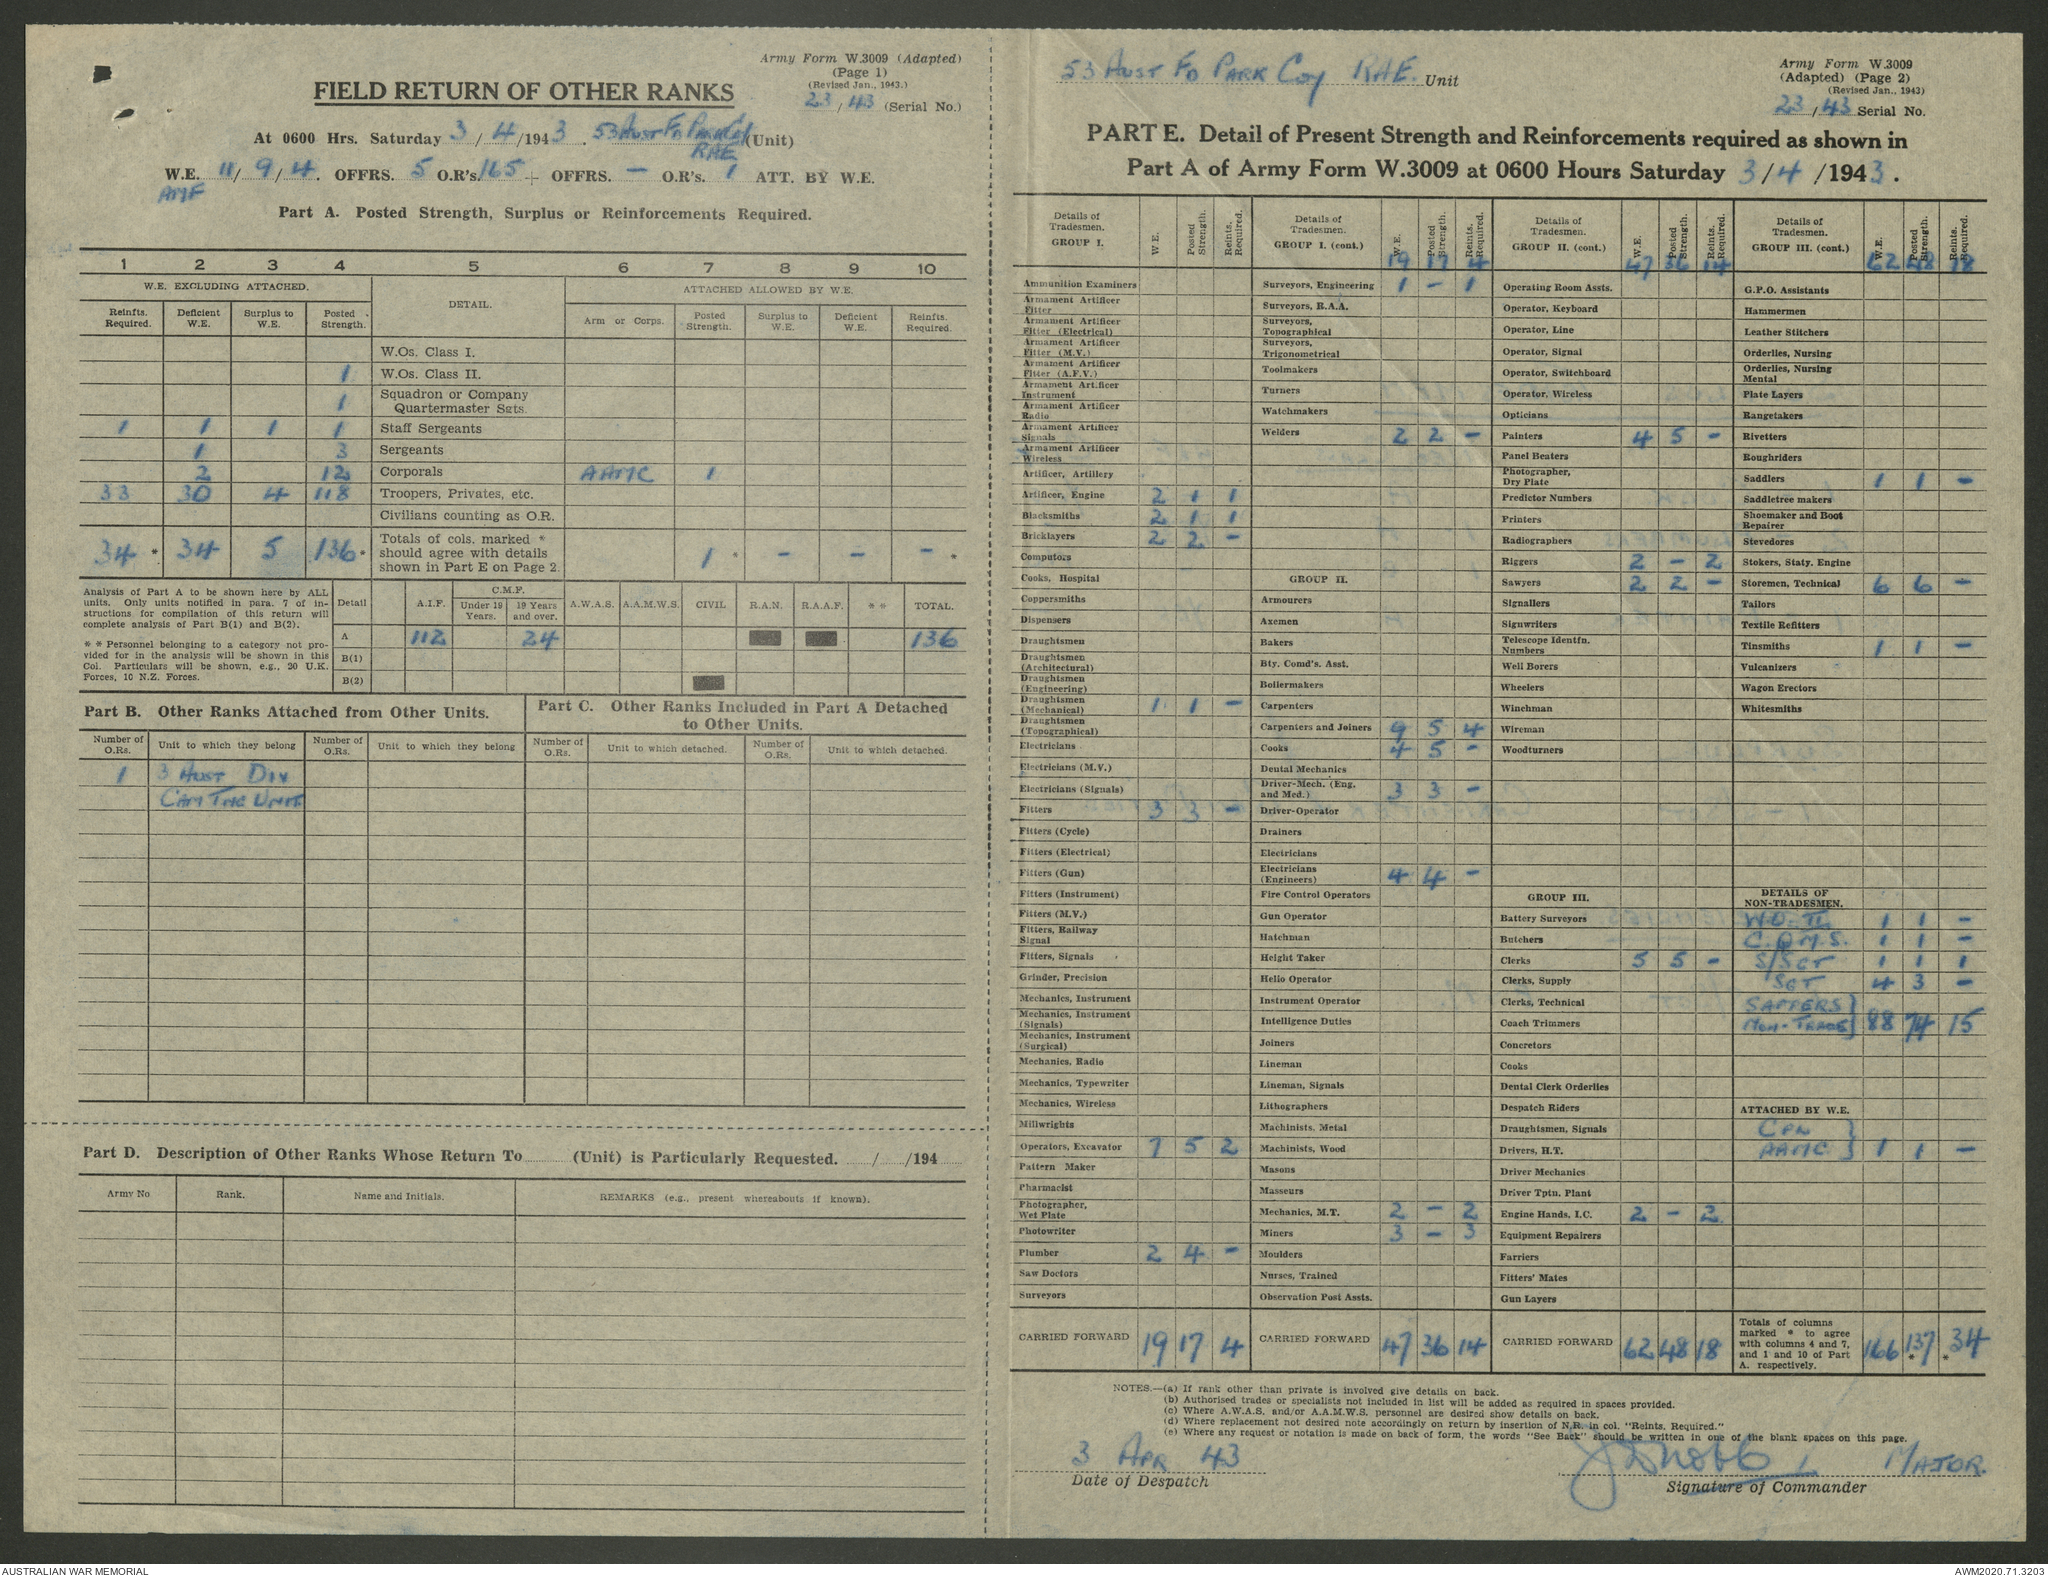 Army Form W.3009 (Adapted)
(Page 1)
(Revised Jan., 1943.)
FIELD RETURN OF OTHER RANKS
23 / 43 (Serial No.)
At 0600 Hrs. Saturday 3 / 4 / 1943. 53 Aust Fd Park Coy (Unit)
RAE
W.E. 11 / 9 / 4. OFFRS. 5 O.R's. 165 + OFFRS. — O.R's. 1 ATT. BY W.E.
AMF
Part A. Posted Strength, Surplus or Reinforcements Required.
1 2 3 4 5 6 7 8 9 10
W.E. EXCLUDING ATTACHED. DETAIL. ATTACHED ALLOWED BY W.E.
Reinfts. Required. Deficient W.E. Surplus to W.E. Posted Strength. Arm or Corps. Posted Strength. Surplus to W.E. Deficient W.E. Reinfts. Required.
W.Os. Class I.
1 W.Os. Class II.
1 Squadron or Company Quartermaster Sgts.
1 1 1 1 Staff Sergeants
1 3 Sergeants
2 12 Corporals AAMC 1
33 30 4 118 Troopers, Privates, etc.
Civilians counting as O.R.
34 * 34 5 136 * Totals of cols. marked * should agree with details shown in Part E on Page 2. 1 * — — — *
Analysis of Part A to be shown here by ALL
units. Only units notified in para. 7 of in-
structions for compilation of this return will
complete analysis of Part B(1) and B(2).
* * Personnel belonging to a category not pro-
vided for in the analysis will be shown in this
Col. Particulars will be shown, e.g., 20 U.K.
Forces, 10 N.Z. Forces.
Detail A.I.F. C.M.F. Under 19 Years. 19 Years and over. A.W.A.S. A.A.M.W.S. CIVIL R.A.N. R.A.A.F. * * TOTAL.
A 112 24 136
B(1)
B(2)
Part B. Other Ranks Attached from Other Units.
Part C. Other Ranks Included in Part A Detached
to Other Units.
Number of O.Rs. Unit to which they belong Number of O.Rs. Unit to which they belong Number of O.Rs. Unit to which detached. Number of O.Rs. Unit to which detached.
1 3 Aust Div
Cam Tng Unit
Part D. Description of Other Ranks Whose Return To ........ (Unit) is Particularly Requested. ...../...../194.....
Army No Rank. Name and Initials. REMARKS (e.g., present whereabouts if known).
53 Aust Fd Park Coy RAE. Unit
Army Form W.3009
(Adapted) (Page 2)
(Revised Jan., 1943)
23 / 43 Serial No.
PART E. Detail of Present Strength and Reinforcements required as shown in
Part A of Army Form W.3009 at 0600 Hours Saturday 3 / 4 / 1943.
Details of Tradesmen. GROUP I. W.E. Posted Strength. Reints. Required.
Ammunition Examiners
Armament Artificer Fitter
Armament Artificer Fitter (Electrical)
Armament Artificer Fitter (M.V.)
Armament Artificer Fitter (A.F.V.)
Armament Artificer Instrument
Armament Artificer Radio
Armament Artificer Signals
Armament Artificer Wireless
Artificer, Artillery
Artificer, Engine 2 1 1
Blacksmiths 2 1 1
Bricklayers 2 2 —
Computors
Cooks, Hospital
Coppersmiths
Dispensers
Draughtsmen
Draughtsmen (Architectural)
Draughtsmen (Engineering)
Draughtsmen (Mechanical) 1 1 —
Draughtsmen (Topographical)
Electricians
Electricians (M.V.)
Electricians (Signals)
Fitters 3 3 —
Fitters (Cycle)
Fitters (Electrical)
Fitters (Gun)
Fitters (Instrument)
Fitters (M.V.)
Fitters, Railway Signal
Fitters, Signals
Grinder, Precision
Mechanics, Instrument
Mechanics, Instrument (Signals)
Mechanics, Instrument (Surgical)
Mechanics, Radio
Mechanics, Typewriter
Mechanics, Wireless
Millwrights
Operators, Excavator 7 5 2
Pattern Maker
Pharmacist
Photographer, Wet Plate
Photowriter
Plumber 2 4 —
Saw Doctors
Surveyors
CARRIED FORWARD 19 17 4
Details of Tradesmen. GROUP I. (cont.) W.E. Posted Strength. Reints. Required.
19 17 4
Surveyors, Engineering 1 — 1
Surveyors, R.A.A.
Surveyors, Topographical
Surveyors, Trigonometrical
Toolmakers
Turners
Watchmakers
Welders 2 2 —
GROUP II.
Armourers
Axemen
Bakers
Bty. Comd's. Asst.
Boilermakers
Carpenters
Carpenters and Joiners 9 5 4
Cooks 4 5 —
Dental Mechanics
Driver-Mech. (Eng. and Med.) 3 3 —
Driver-Operator
Drainers
Electricians
Electricians (Engineers) 4 4 —
Fire Control Operators
Gun Operator
Hatchman
Height Taker
Helio Operator
Instrument Operator
Intelligence Duties
Joiners
Lineman
Lineman, Signals
Lithographers
Machinists, Metal
Machinists, Wood
Masons
Masseurs
Mechanics, M.T. 2 — 2
Miners 3 — 3
Moulders
Nurses, Trained
Observation Post Assts.
CARRIED FORWARD 47 36 14
Details of Tradesmen. GROUP II. (cont.) W.E. Posted Strength. Reints. Required.
47 36 14
Operating Room Assts.
Operator, Keyboard
Operator, Line
Operator, Signal
Operator, Switchboard
Operator, Wireless
Opticians
Painters 4 5 —
Panel Beaters
Photographer, Dry Plate
Predictor Numbers
Printers
Radiographers
Riggers 2 — 2
Sawyers 2 2 —
Signallers
Signwriters
Telescope Identfn. Numbers
Well Borers
Wheelers
Winchman
Wireman
Woodturners
GROUP III.
Battery Surveyors
Butchers
Clerks 5 5 —
Clerks, Supply
Clerks, Technical
Coach Trimmers
Concretors
Cooks
Dental Clerk Orderlies
Despatch Riders
Draughtsmen, Signals
Drivers, H.T.
Driver Mechanics
Driver Tptn. Plant
Engine Hands, I.C. 2 — 2
Equipment Repairers
Farriers
Fitters' Mates
Gun Layers
CARRIED FORWARD 62 48 18
Details of Tradesmen. GROUP III. (cont.) W.E. Posted Strength. Reints. Required.
62 48 18
G.P.O. Assistants
Hammermen
Leather Stitchers
Orderlies, Nursing
Orderlies, Nursing Mental
Plate Layers
Rangetakers
Rivetters
Roughriders
Saddlers 1 1 —
Saddletree makers
Shoemaker and Boot Repairer
Stevedores
Stokers, Staty. Engine
Storemen, Technical 6 6 —
Tailors
Textile Refitters
Tinsmiths 1 1 —
Vulcanizers
Wagon Erectors
Whitesmiths
DETAILS OF NON-TRADESMEN.
W.O. II 1 1 —
C.Q.M.S. 1 1 —
S/SGT 1 1 1
SGT 4 3 —
SAPPERS
NON-TRADE } 88 74 15
ATTACHED BY W.E.
CPL
AAMC } 1 1 —
Totals of columns marked * to agree with columns 4 and 7, and 1 and 10 of Part A. respectively. 166 137 * * 34
NOTES.—(a) If rank other than private is involved give details on back.
(b) Authorised trades or specialists not included in list will be added as required in spaces provided.
(c) Where A.W.A.S. and/or A.A.M.W.S. personnel are desired show details on back.
(d) Where replacement not desired note accordingly on return by insertion of N.R. in col. "Reints. Required."
(e) Where any request or notation is made on back of form, the words "See Back" should be written in one of the blank spaces on this page.
3 Apr 43
Date of Despatch
Major.
Signature of Commander
AUSTRALIAN WAR MEMORIAL
AWM2020.71.3203